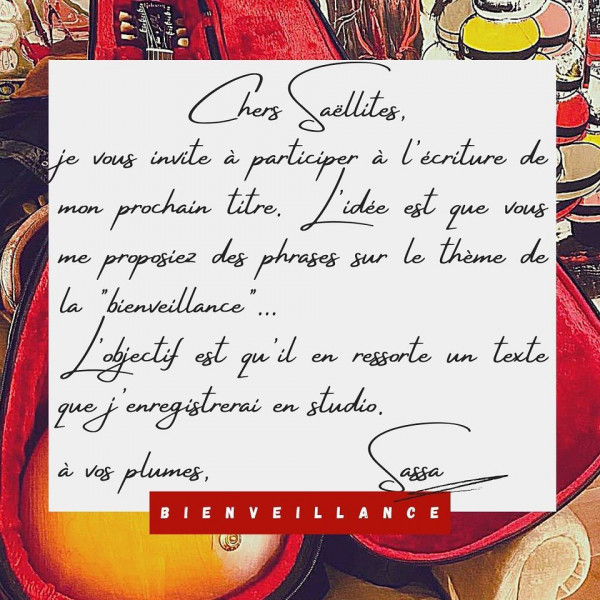 Chers Saëllites,
je vous invite à participer à l'écriture de
mon prochain titre. L'idée est que vous
me proposiez des phrases sur le thème de
la "bienveillance"...
L'objectif est qu'il en ressorte un texte
que j'enregistrerai en studio.
à vos plumes, Sassa
BIENVEILLANCE